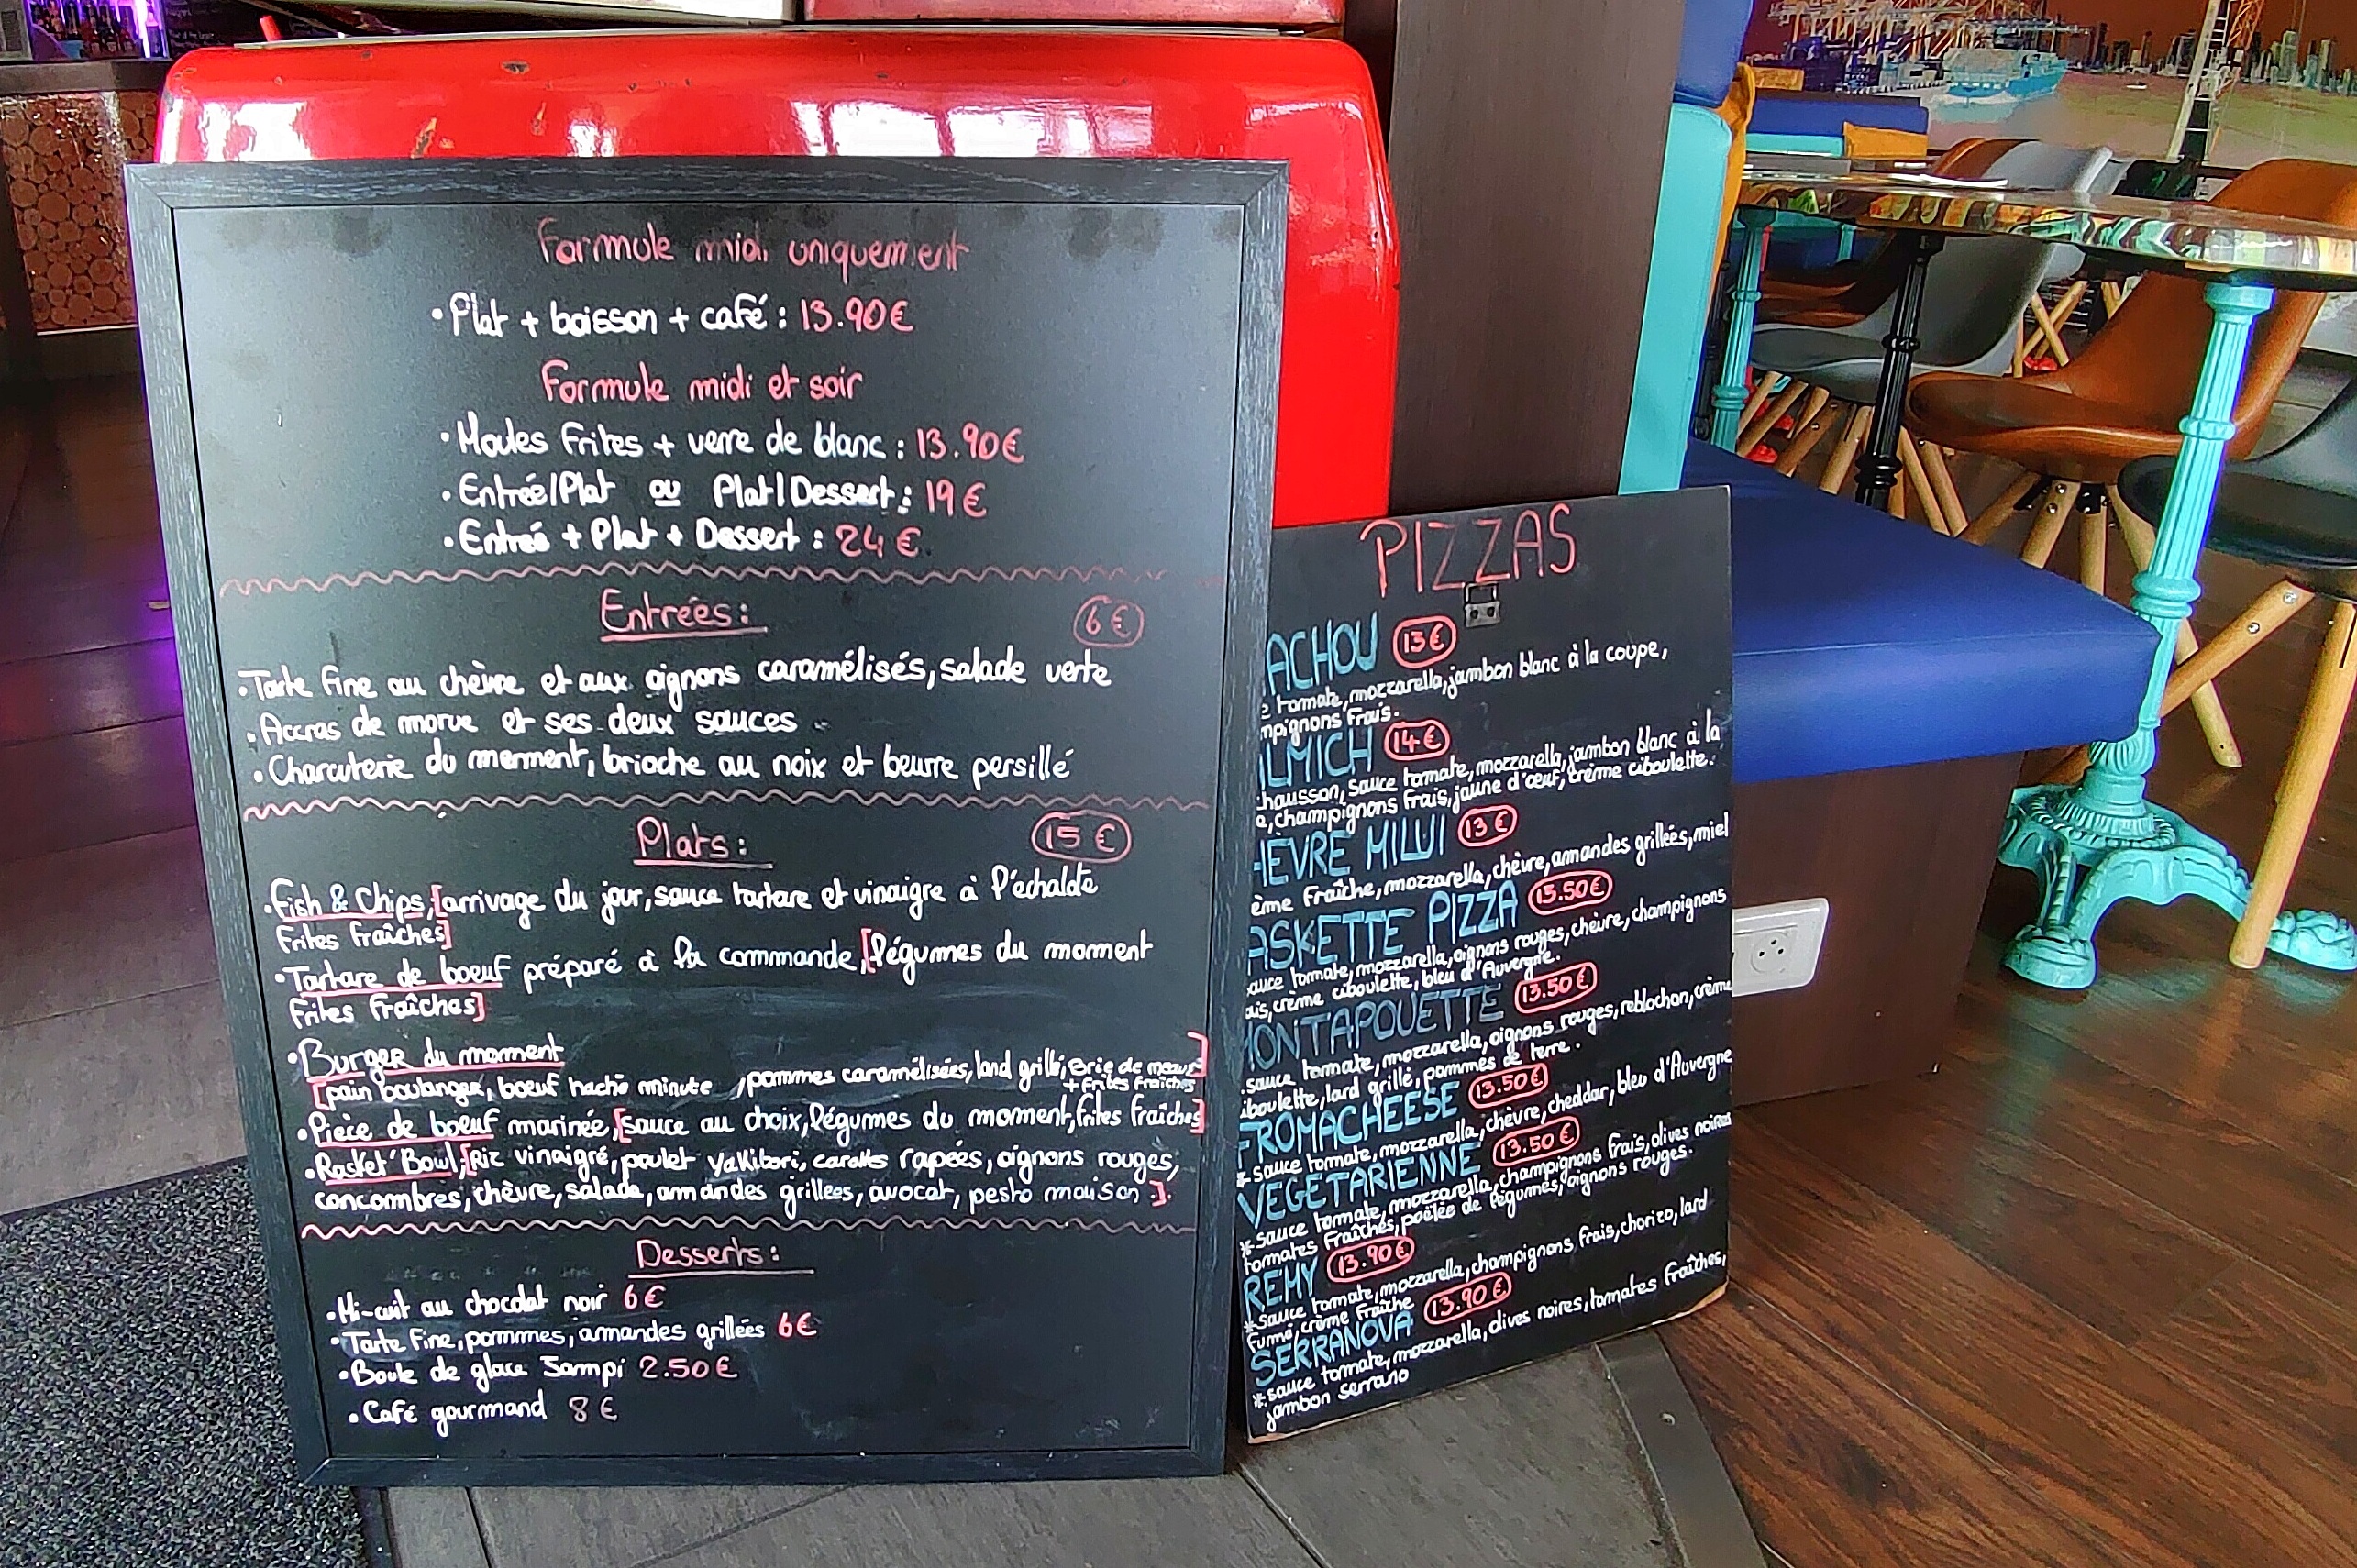 Formule midi uniquement
• Plat + boisson + café : 13.90€
Formule midi et soir
• Moules Frites + verre de blanc : 13.90€
• Entrée/Plat ou Plat/Dessert : 19€
• Entrée + Plat + Dessert : 24€
Entrées : 6€
• Tarte fine au chèvre et aux oignons caramélisés, salade verte
• Accras de morue et ses deux sauces
• Charcuterie du moment, brioche au noix et beurre persillé
Plats : 15€
• Fish & Chips, [arrivage du jour, sauce tartare et vinaigre à l'échalote
Frites fraîches]
• Tartare de boeuf préparé à la commande, [légumes du moment
Frites fraîches]
• Burger du moment
[pain boulanger, boeuf haché minute, pommes caramélisées, lard grillé, Brie de meaux]
+ frites fraîches
• Pièce de boeuf marinée, [sauce au choix, légumes du moment, frites fraîches]
• Basket'Bowl, [Riz vinaigré, poulet yakitori, carottes rapées, oignons rouges,
concombres, chèvre, salade, amandes grillées, avocat, pesto maison.]
Desserts :
• Mi-cuit au chocolat noir 6€
• Tarte fine, pommes, amandes grillées 6€
• Boule de glace Sampi 2.50€
• Café gourmand 8€
PIZZAS
ACHOU 13€
e tomate, mozzarella, jambon blanc à la coupe,
mpignons frais.
LMICH 14€
hausson, sauce tomate, mozzarella, jambon blanc à la
e, champignons frais, jaune d'œuf, crème ciboulette.
HÈVRE MILUI 13€
ème fraîche, mozzarella, chèvre, amandes grillées, miel
ASKETTE PIZZA 13.50€
auce tomate, mozzarella, oignons rouges, chèvre, champignons
ais, crème ciboulette, bleu d'Auvergne.
MONTAPOUETTE 13.50€
sauce tomate, mozzarella, oignons rouges, reblochon, crème
iboulette, lard grillé, pommes de terre.
FROMACHEESE 13.50€
* sauce tomate, mozzarella, chèvre, cheddar, bleu d'Auvergne
VEGETARIENNE 13.50€
* sauce tomate, mozzarella, champignons frais, olives noires
tomates fraîches, poêlée de légumes, oignons rouges.
REMY 13.90€
* sauce tomate, mozzarella, champignons frais, chorizo, lard
fumé, crème fraîche
SERRANOVA 13.90€
* sauce tomate, mozzarella, olives noires, tomates fraîches,
jambon serrano